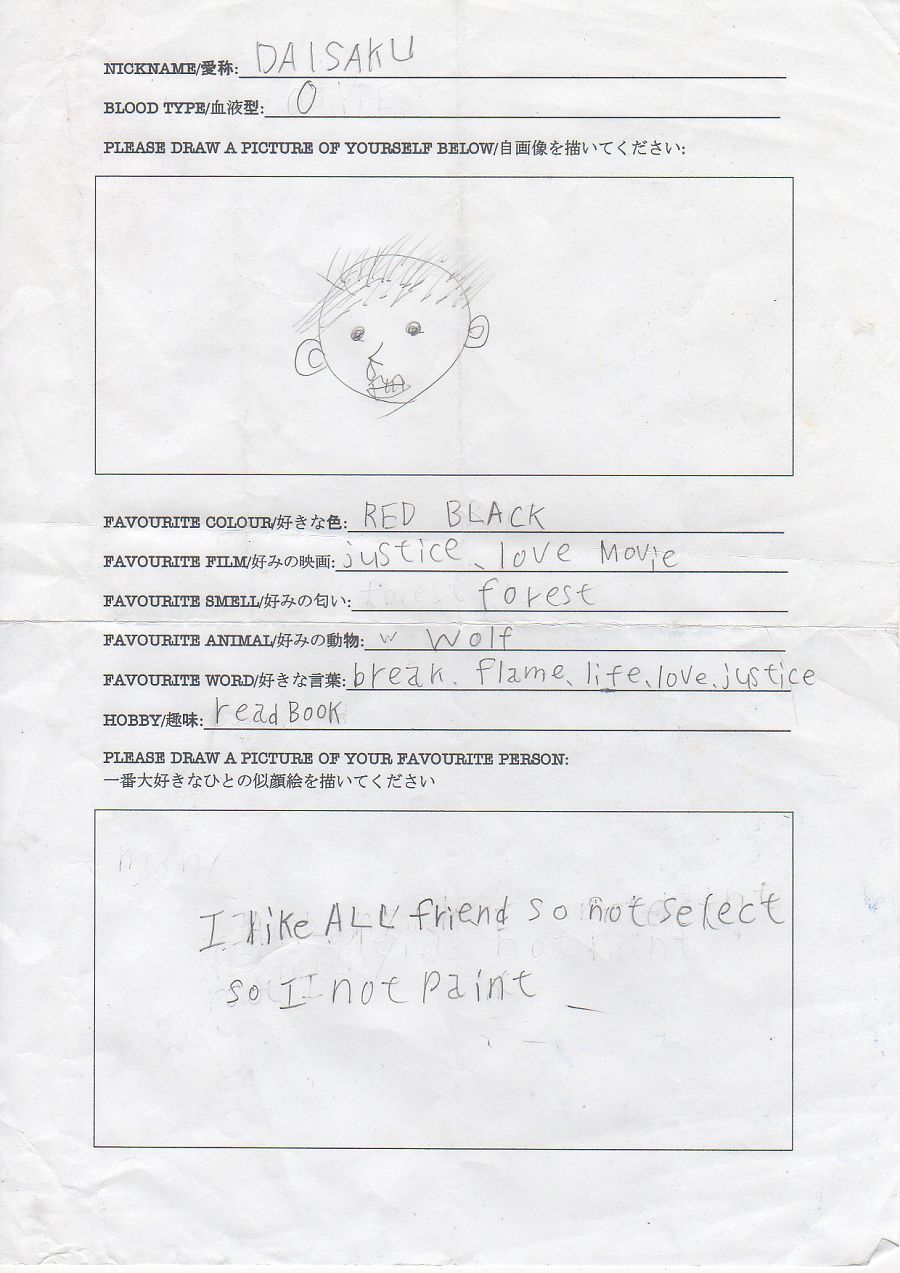 NICKNAME/愛称: DAISAKU
BLOOD TYPE/血液型: O
PLEASE DRAW A PICTURE OF YOURSELF BELOW/自画像を描いてください:
FAVOURITE COLOUR/好きな色: RED BLACK
FAVOURITE FILM/好みの映画: justice、love Movie
FAVOURITE SMELL/好みの匂い: forest
FAVOURITE ANIMAL/好みの動物: w Wolf
FAVOURITE WORD/好きな言葉: break、flame、life、love、justice
HOBBY/趣味: read BOOK
PLEASE DRAW A PICTURE OF YOUR FAVOURITE PERSON:
一番大好きなひとの似顔絵を描いてください
I like ALL friend so not select
so I not paint